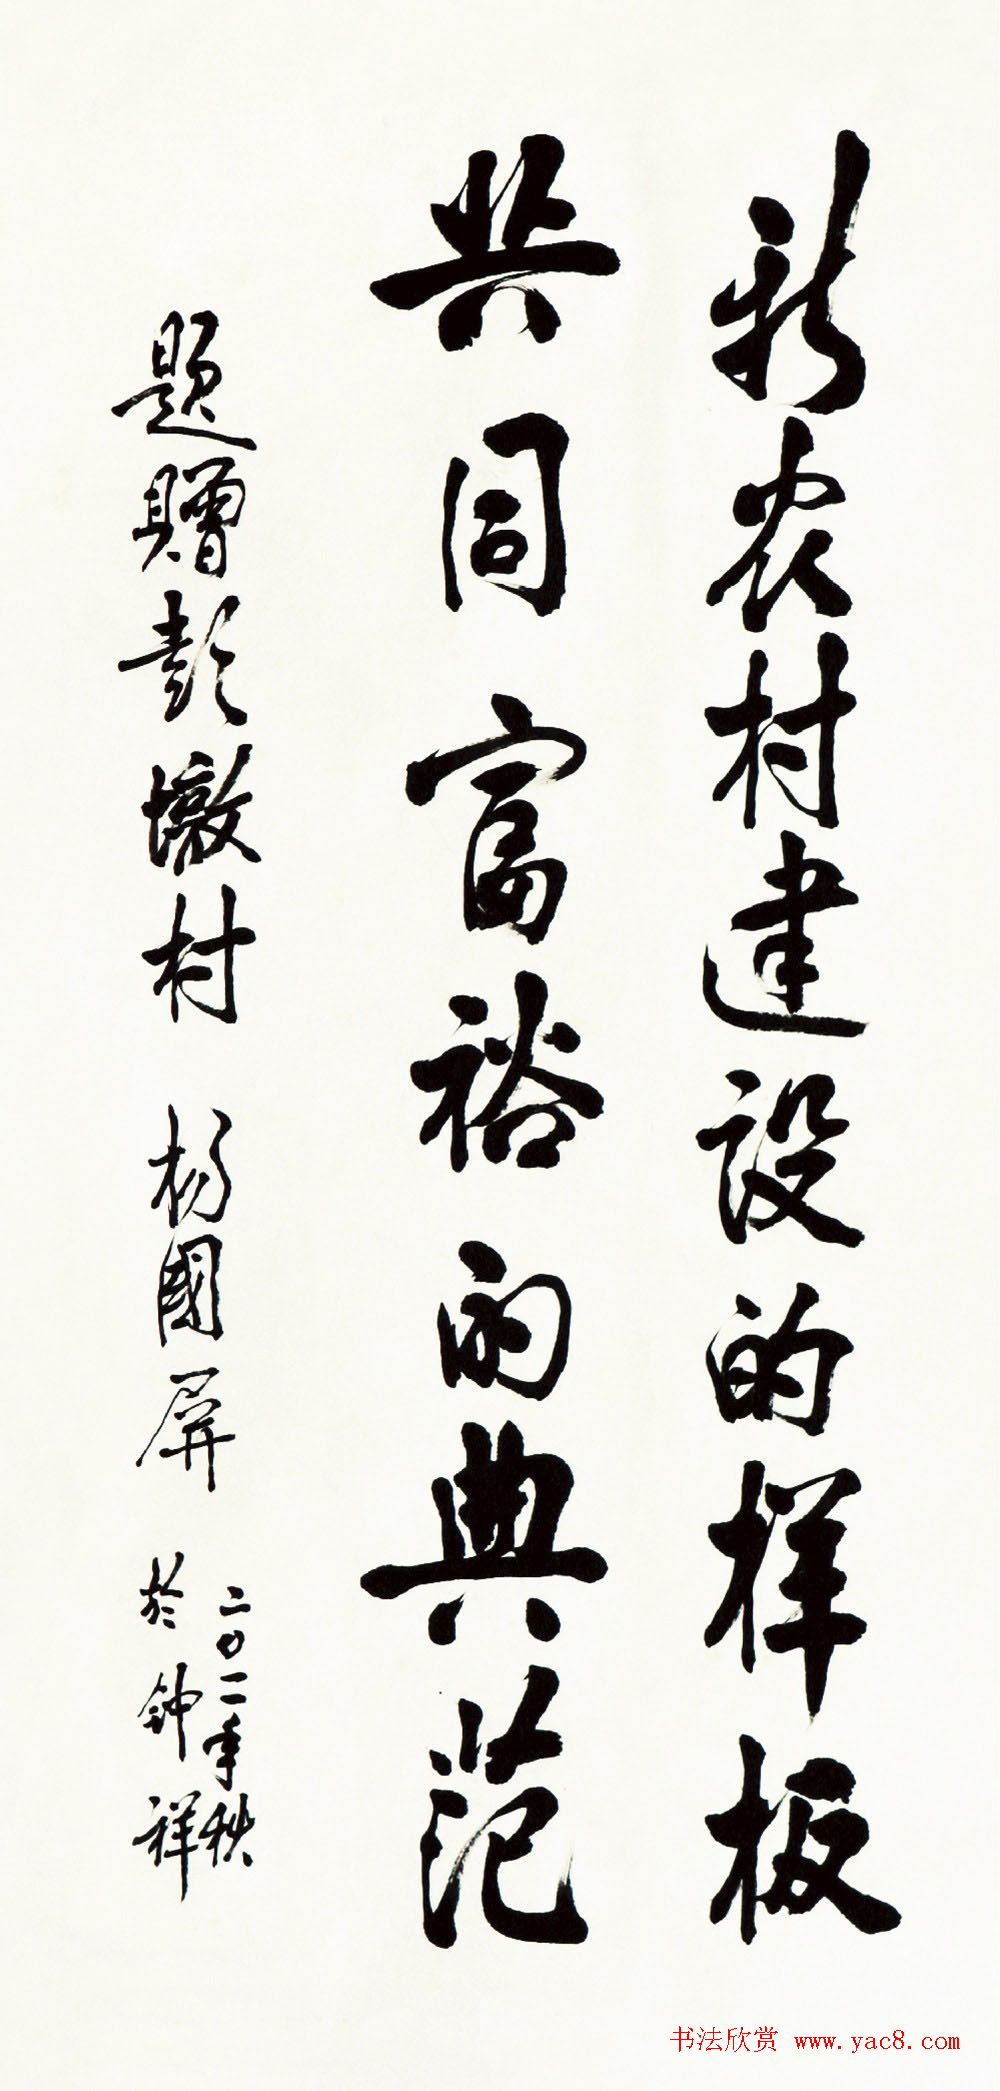 新农村建设的样板
共同富裕的典范
题赠彭墩村 杨國屏
二〇一一年秋
於钟祥
书法欣赏 www.yac8.com